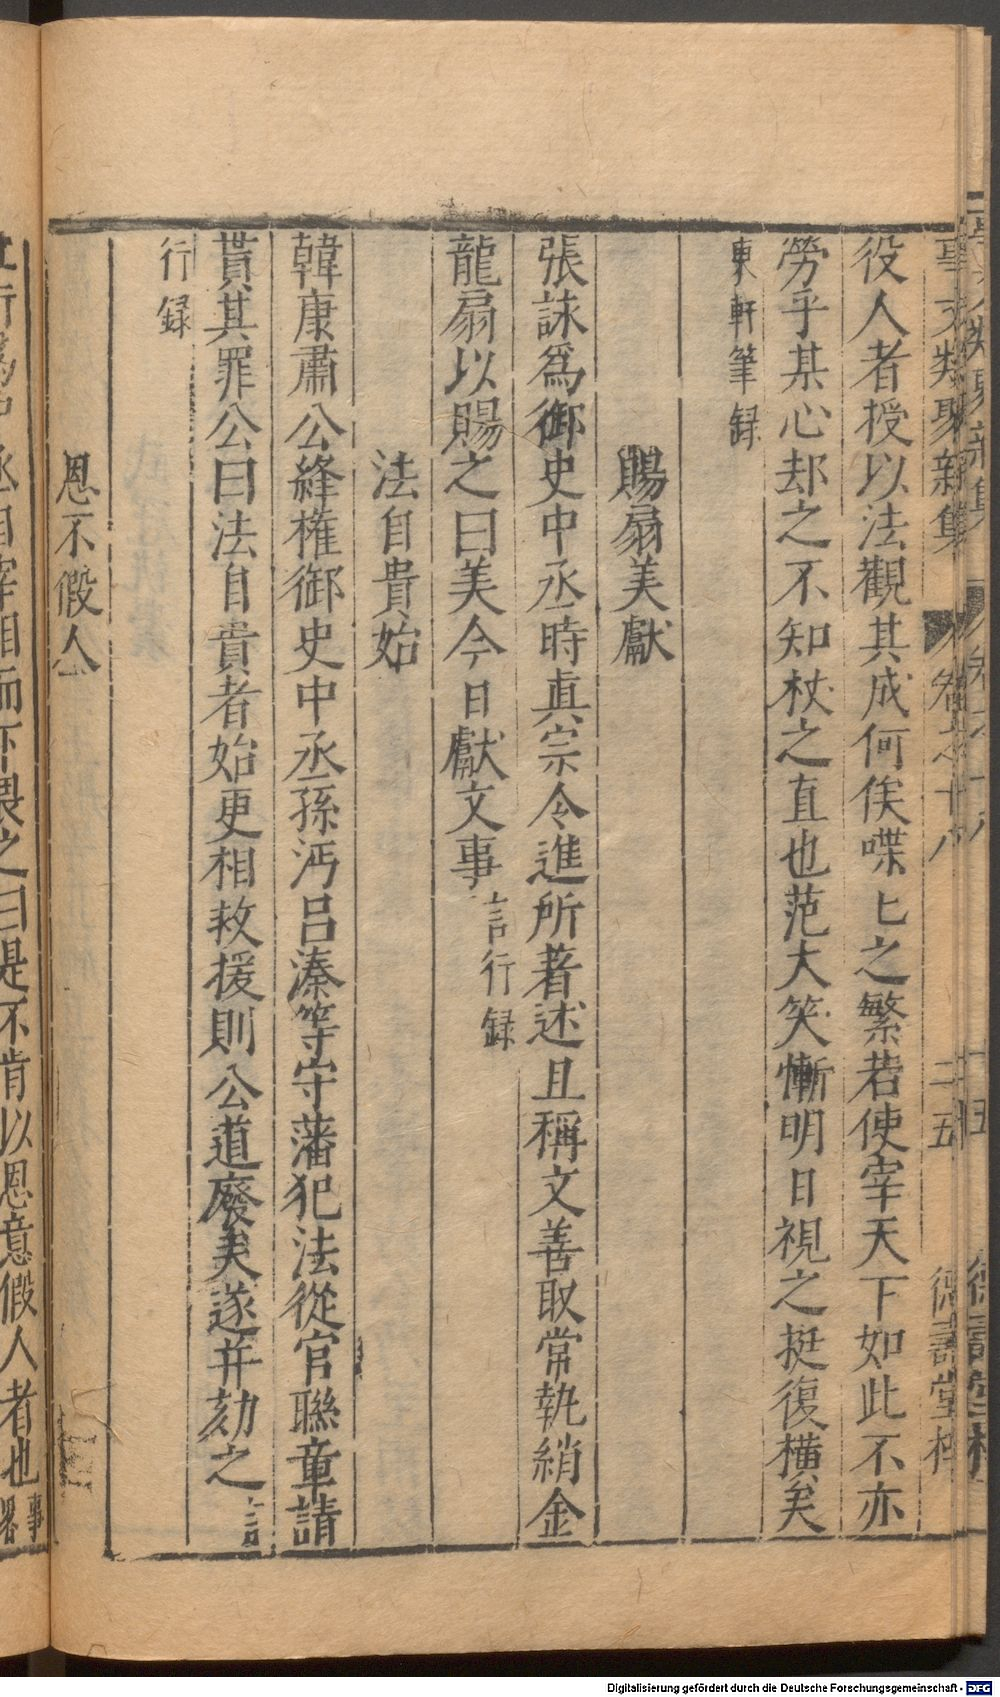 事文類聚新集 卷之十八 二五 德壽堂梓
役人者授以法觀其成何俟喋〻之繁若使宰天下如此不亦
勞乎某心却之不知杖之直也范大笑慚明日視之挺復橫矣
東軒筆録
賜扇美獻
張詠爲御史中丞時真宗令進所著述且稱文善取常執綃金
龍扇以賜之曰美今日獻文事 言行録
法自貴始
韓康肅公絳權御史中丞孫沔呂溱等守藩犯法從官聯章請
貰其罪公曰法自貴者始更相救援則公道廢矣遂并劾之 言
行録
恩不假人
中丞自宰相而下畏之曰是不肯以恩意假人者也 事畧
Digitalisierung gefördert durch die Deutsche Forschungsgemeinschaft - DFG